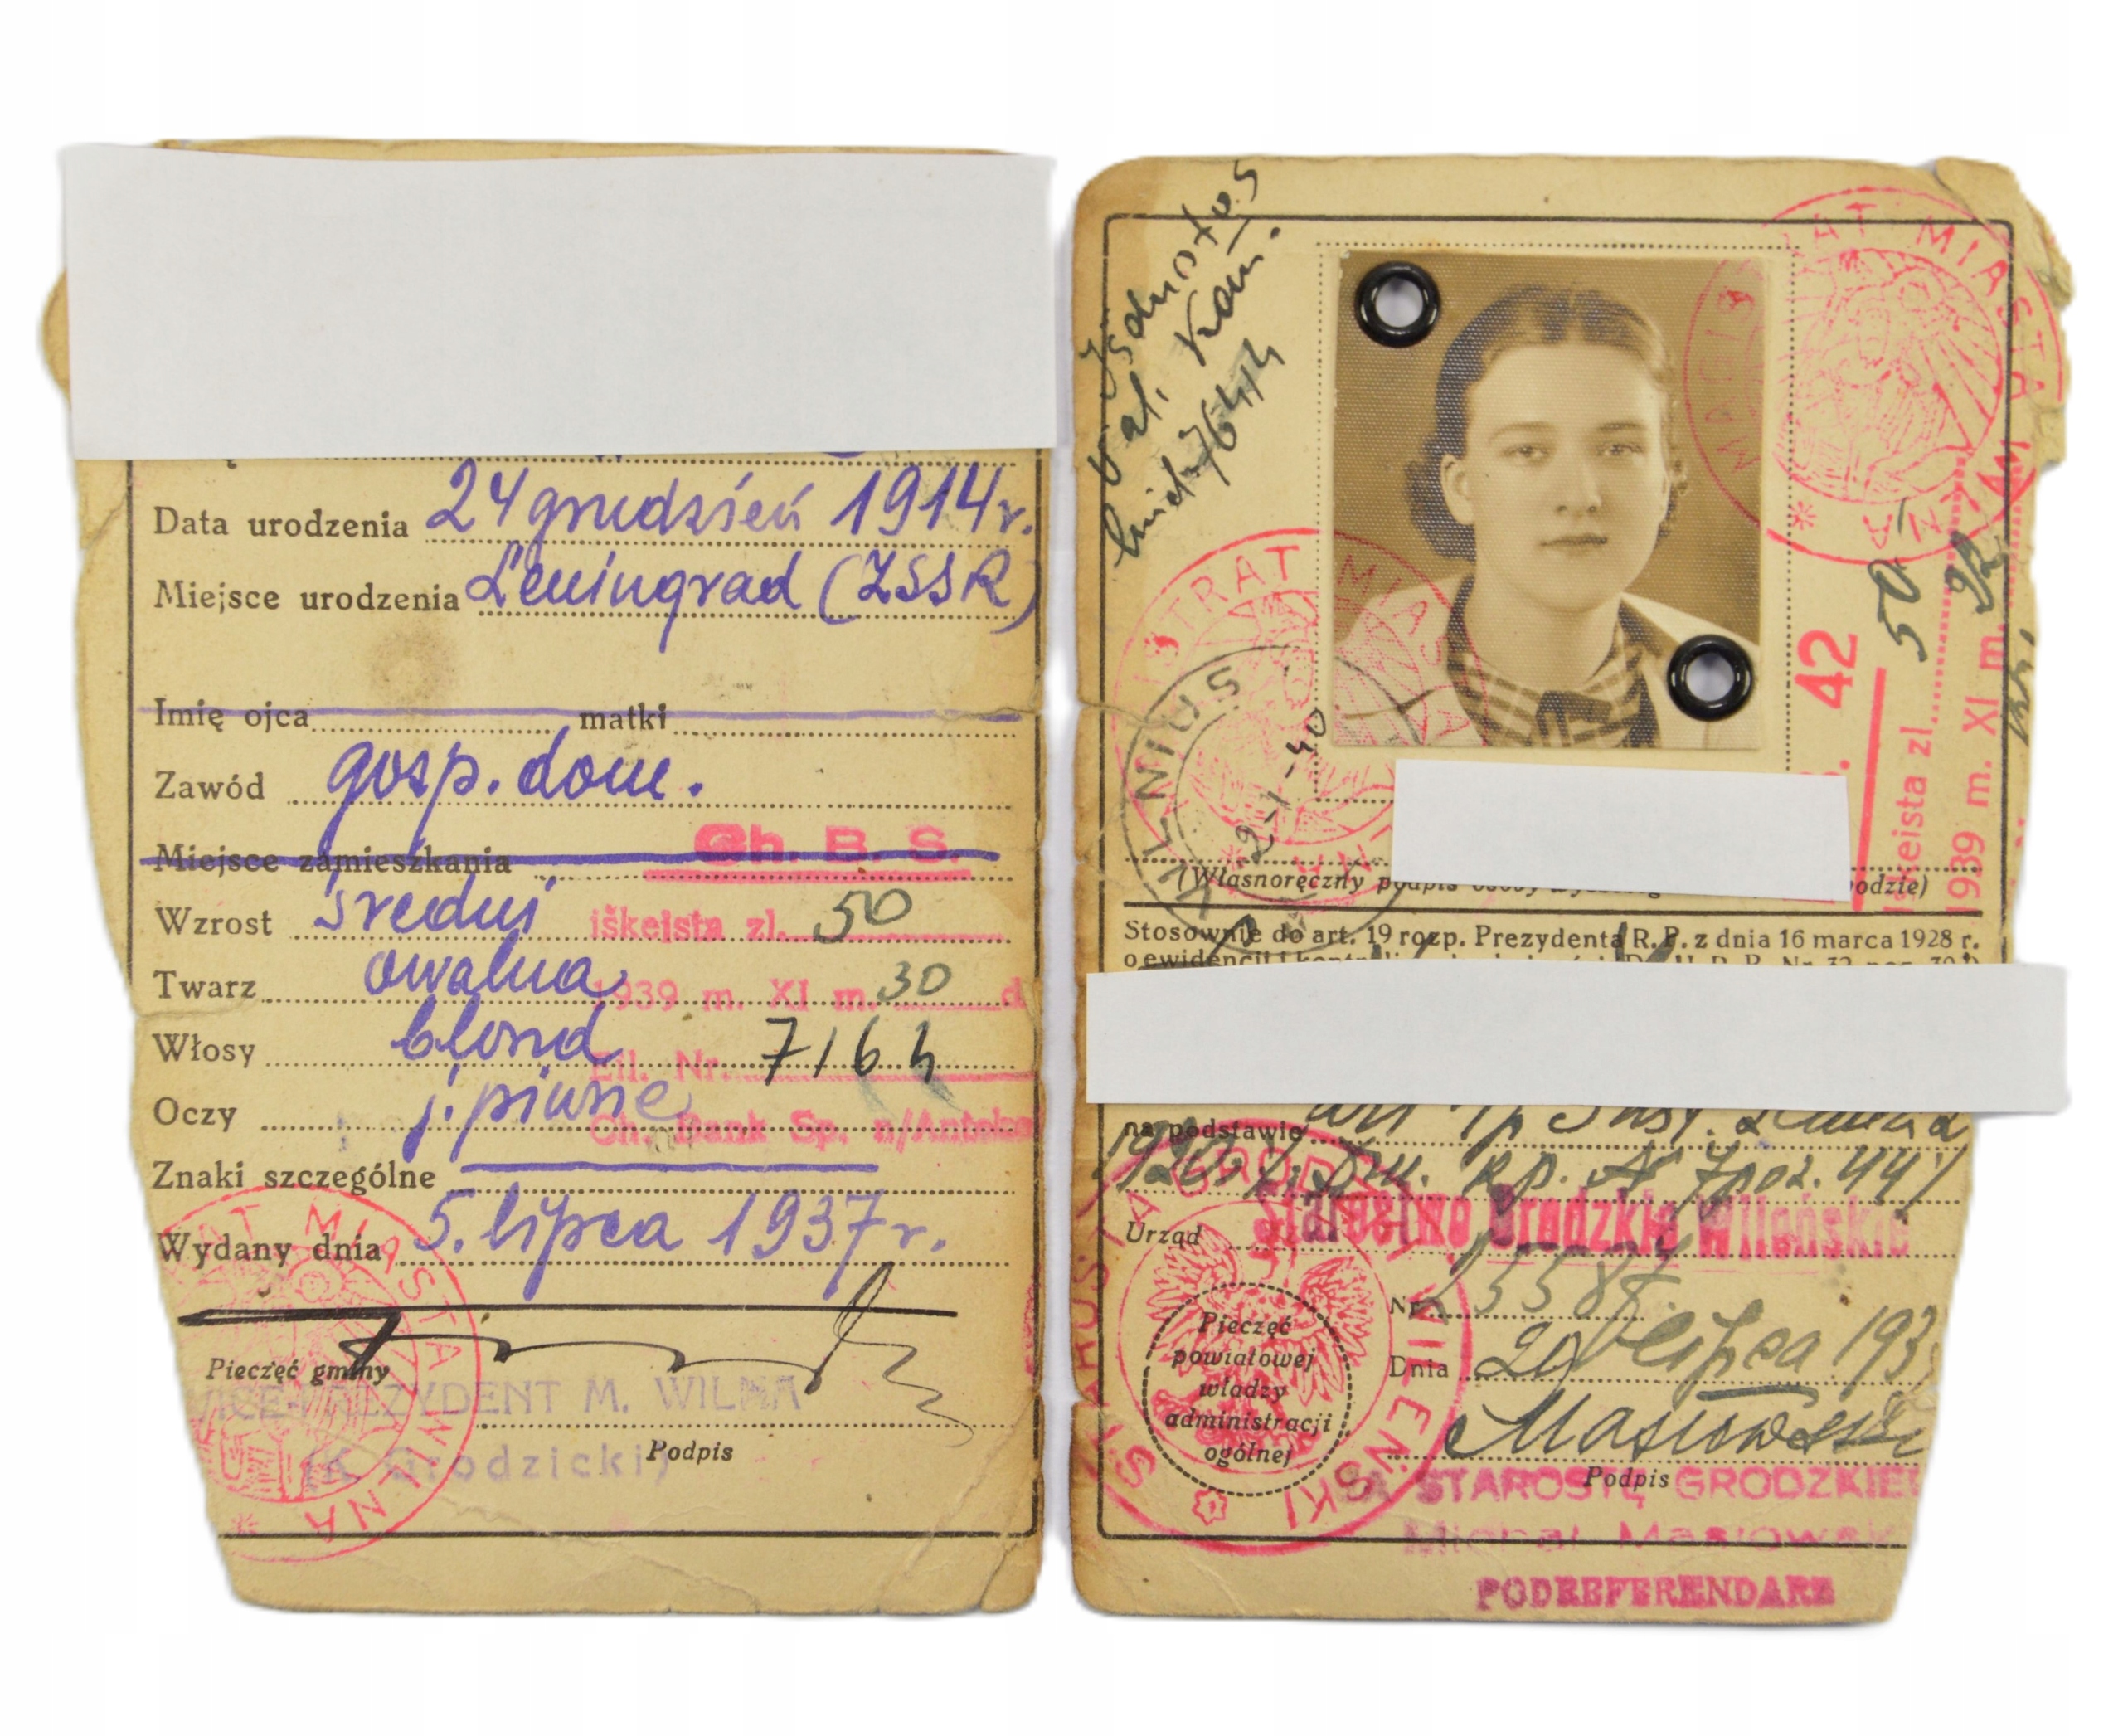 Data urodzenia 24 grudzień 1914 r.
Miejsce urodzenia Leningrad (ZSSR)
Imię ojca matki
Zawód gosp. dom.
Miejsce zamieszkania
Ch. B. S.
Wzrost średni
iškeista zl. 50
Twarz owalna
1939 m. XI m. 30 d.
Włosy blond
Eil. Nr. 7164
Oczy j. piwne
Ch. Bank Sp. n/Antoko
Znaki szczególne
Wydany dnia 5. lipca 1937 r.
Pieczęć gminy
VICE-PREZYDENT M. WILNA
(K Grodzicki)
Podpis
MAGISTRAT MIASTA WILNA
MAGISTRAT MIASTA WILNA
Išduotas
7614
MAGISTRAT MIASTA
VILNIUS
2-1-40
42
iškeista zl. 50
1939 m. XI m.
(Własnoręczny podpis osoby odzie)
Stosownie do art. 19 rozp. Prezydenta R. P. z dnia 16 marca 1928 r.
o ewidencji i kontroli
na podstawie
Urząd Starostwo Grodzkie Wileńskie
Nr.
Dnia 20 lipca 193
Pieczęć
powiatowej
władzy
administracji
ogólnej
STAROSTA GRODZKI WILEŃSKI
Masłowski
Podpis
ZA STAROSTĘ GRODZKIE
Michał Masłowski
PODREFERENDARZ